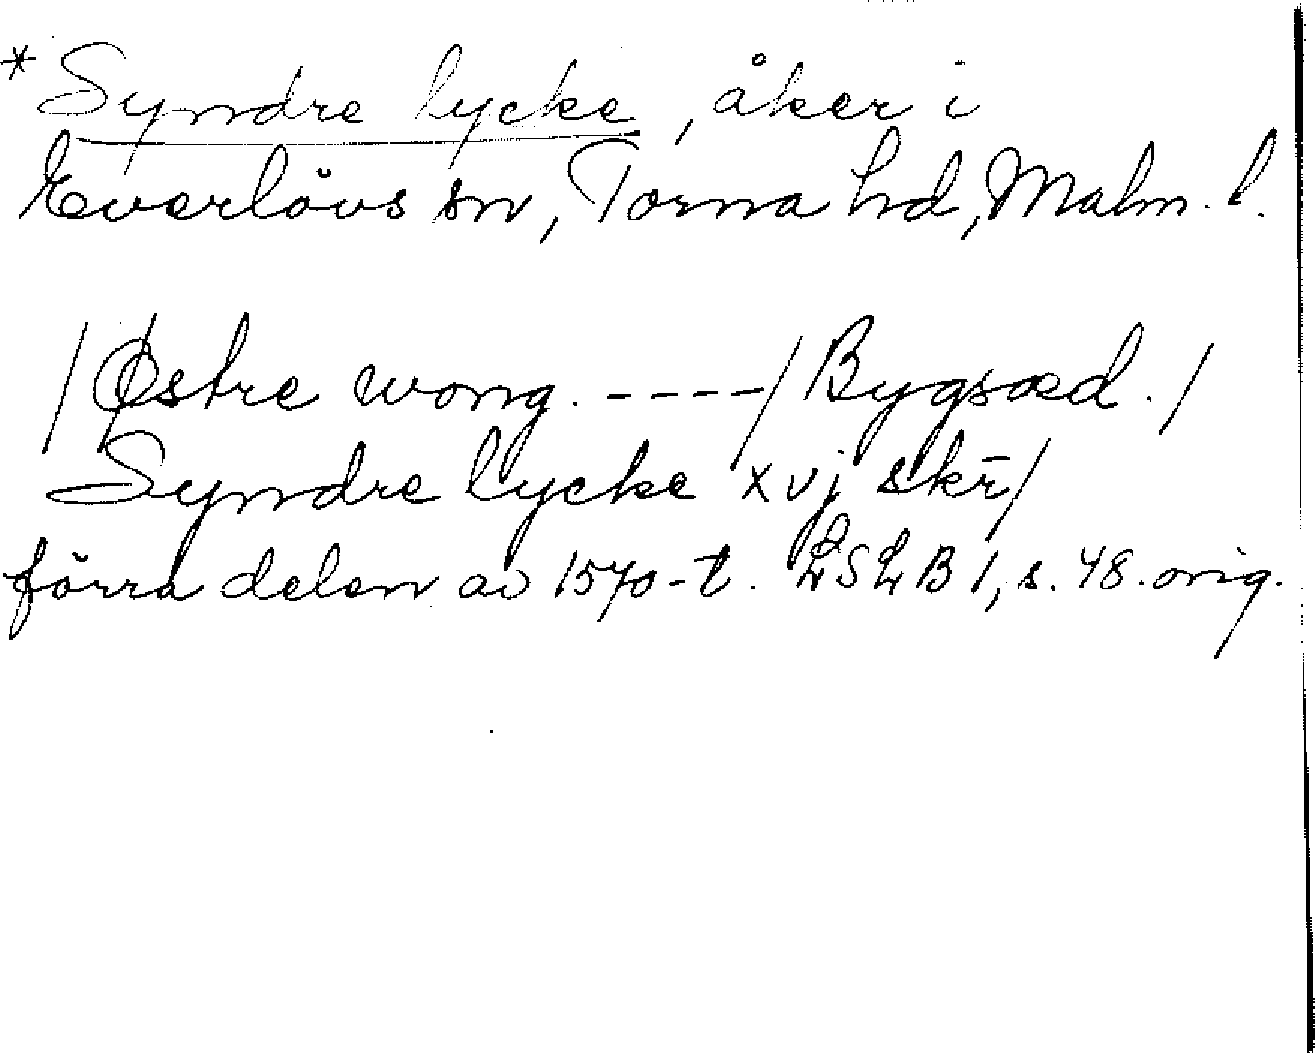 *Syndre lycke, åker i
Everlövs sn, Torna hd, Malm. l.
/Østre wong. ----/Bygsæd./
Syndre lycke xvj skr̄/
förra delen av 1570-t. LSLB 1, s. 48. orig.